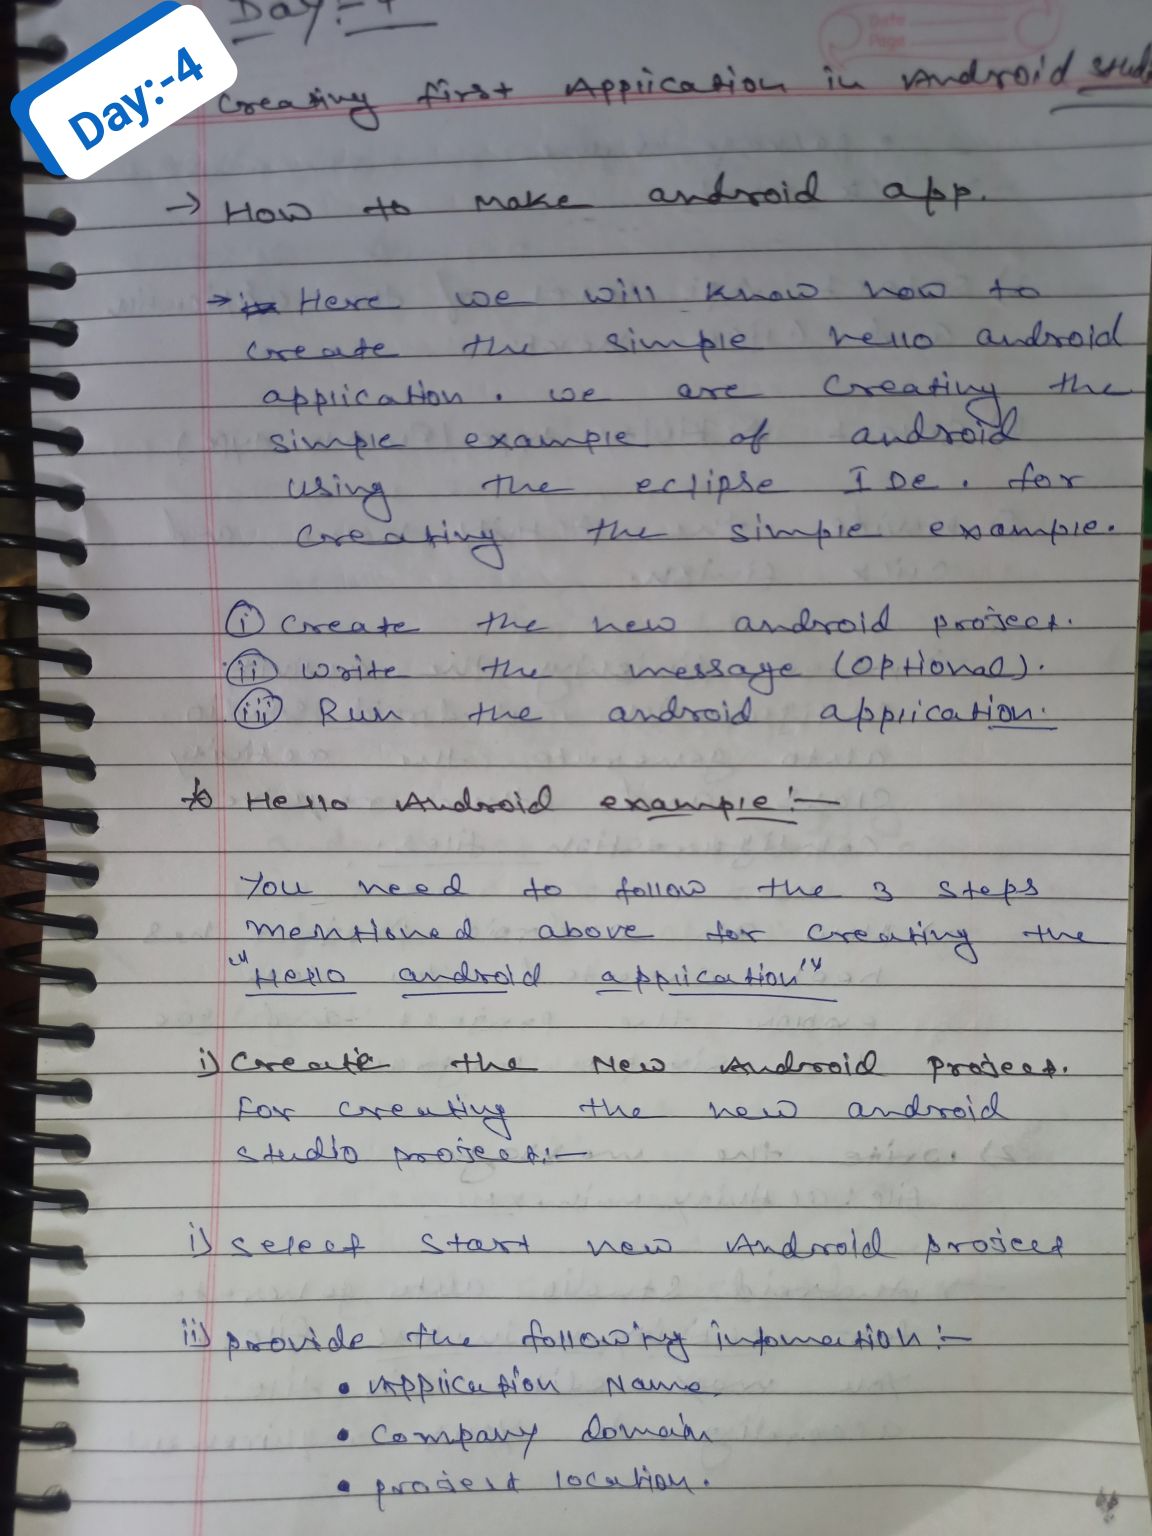 Day:-4
Day:-4
Date
Page
Creating first Application in Android Studi
→ How to make android app.
→ Here we will know how to
create the simple hello android
application. we are creating the
simple example of android
using the eclipse IDe. for
creating the simple example.
(i) create the new android project.
(ii) write the message (optional).
(iii) Run the android application.
* Hello Android example:-
You need to follow the 3 steps
mentioned above for creating the
"Hello android application"
i) Create the New Android project.
For creating the new android
studio project:-
i) select start new Android project
ii) provide the following infomation:-
• Application Name
• Company domain
• project location.